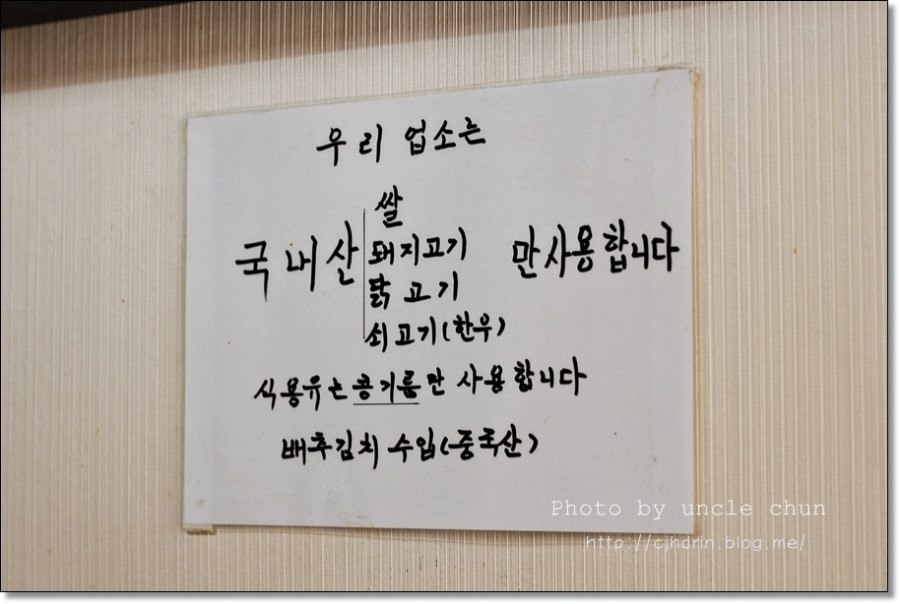 우리 업소는
쌀
국내산 돼지고기 만사용합니다
닭고기
쇠고기(한우)
식용유는 콩기름만 사용합니다
배추김치 수입(중국산)
Photo by uncle chun
http://cjhdrin.blog.me/